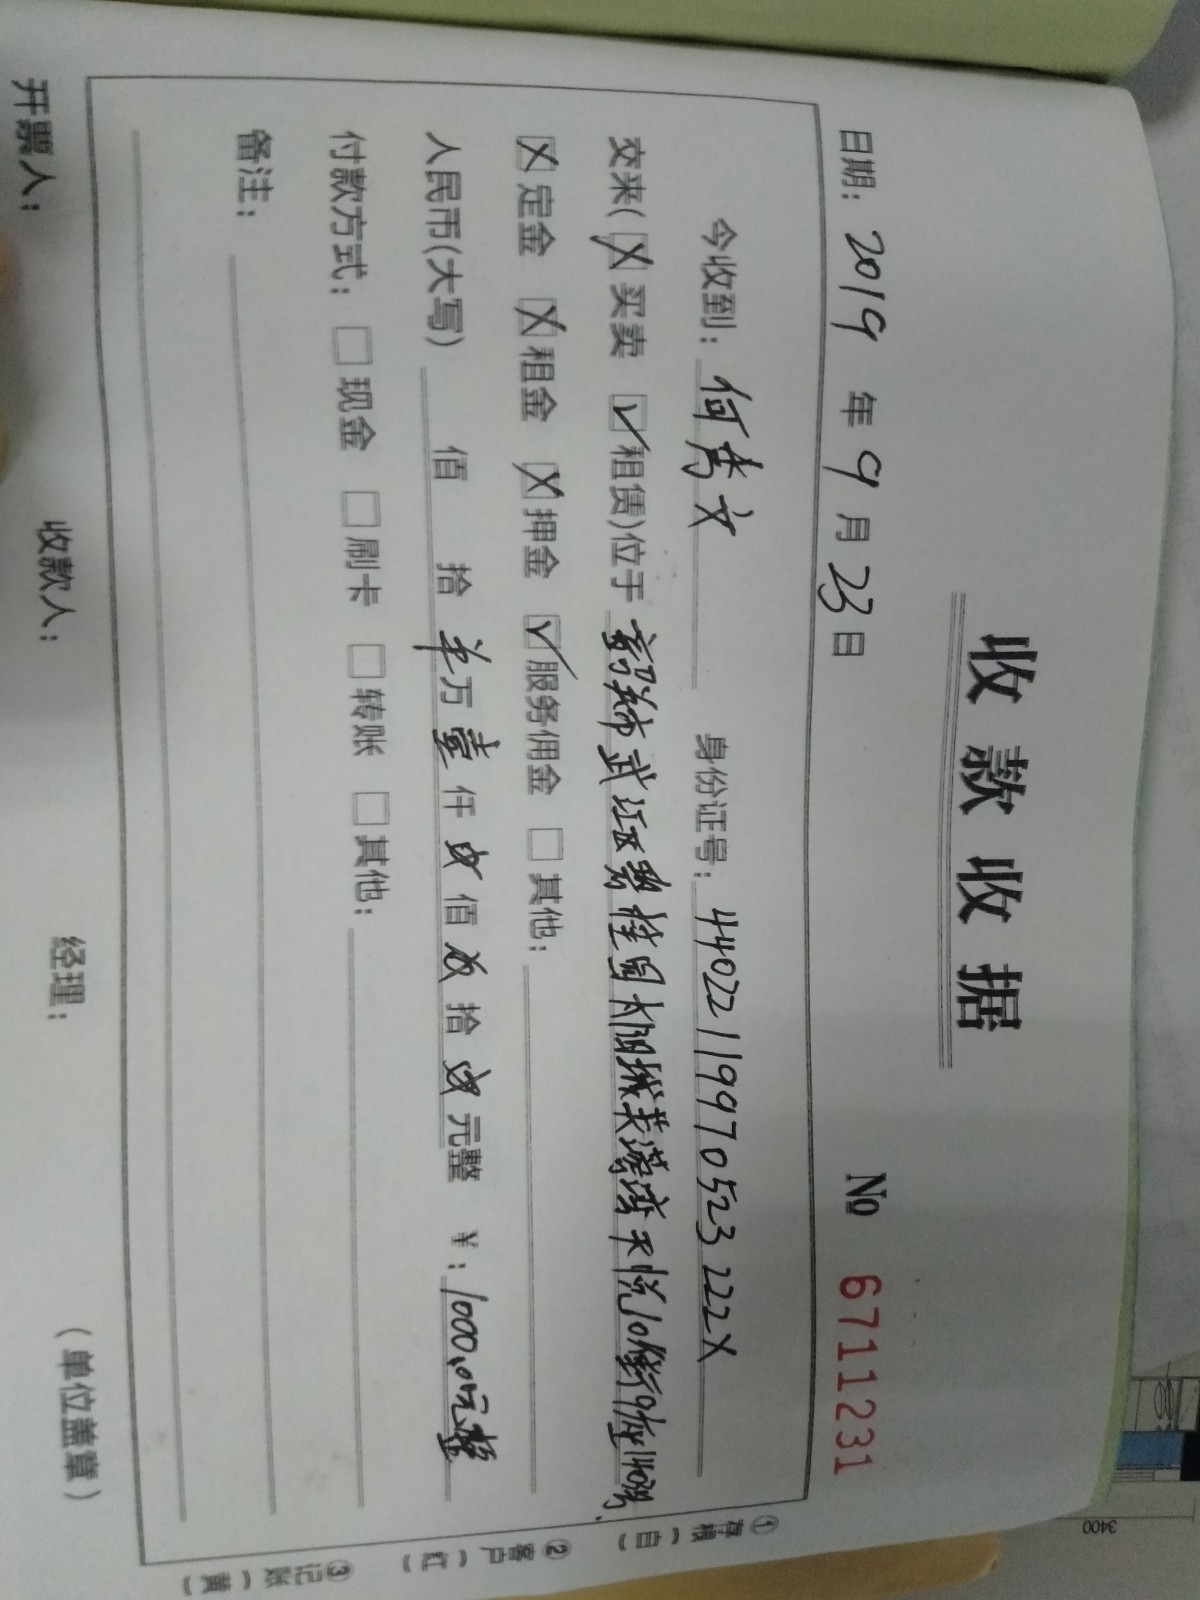 收款收据
日期: 2019 年 9 月 23 日 № 6711231
今收到: 何 文 身份证号: 44022119970523222X
交来( 买卖 租赁)位于 韶关市武江区碧桂园太阳城芙蓉湾天悦10街9座1403房.
定金 租金 押金 服务佣金 其他:
人民币(大写) 佰 拾 万 壹 仟 佰 拾 元整 ¥: 1000.00元整
付款方式: 现金 刷卡 转账 其他:
备注:
开票人: 收款人: 经理: (单位盖章)
①存根(白) ②客户(红) ③记账(黄)
3400